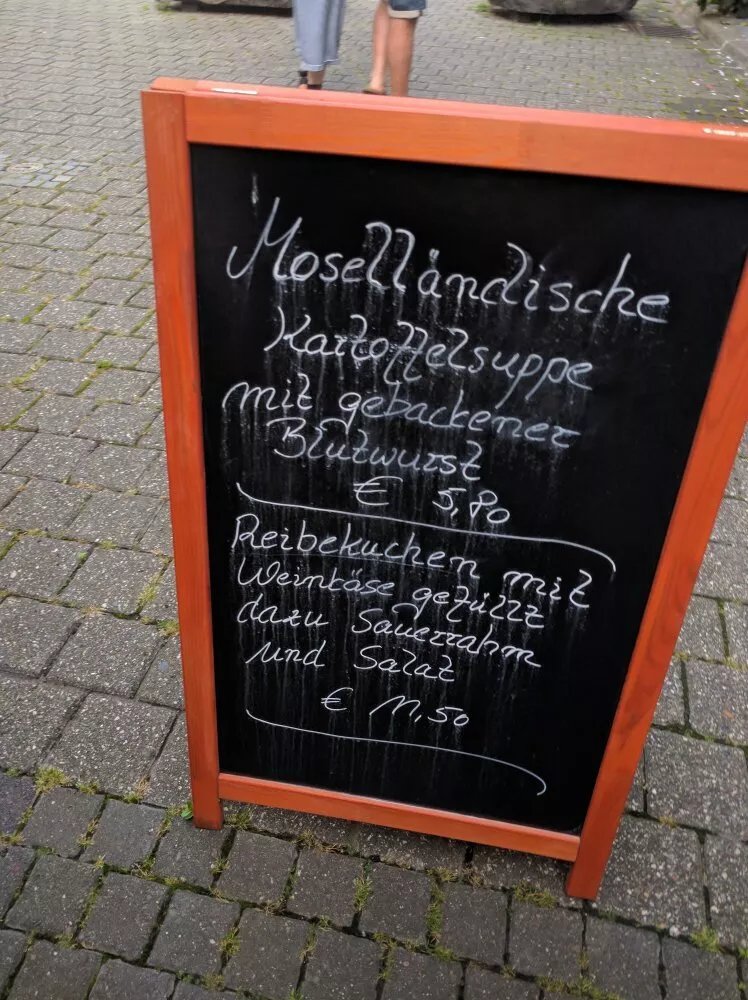 Moselländische
Kartoffelsuppe
mit gebackener
Blutwurst
€ 5,80
Reibekuchen mit
Weinkäse gefüllt
dazu Sauerrahm
und Salat
€ 11,50